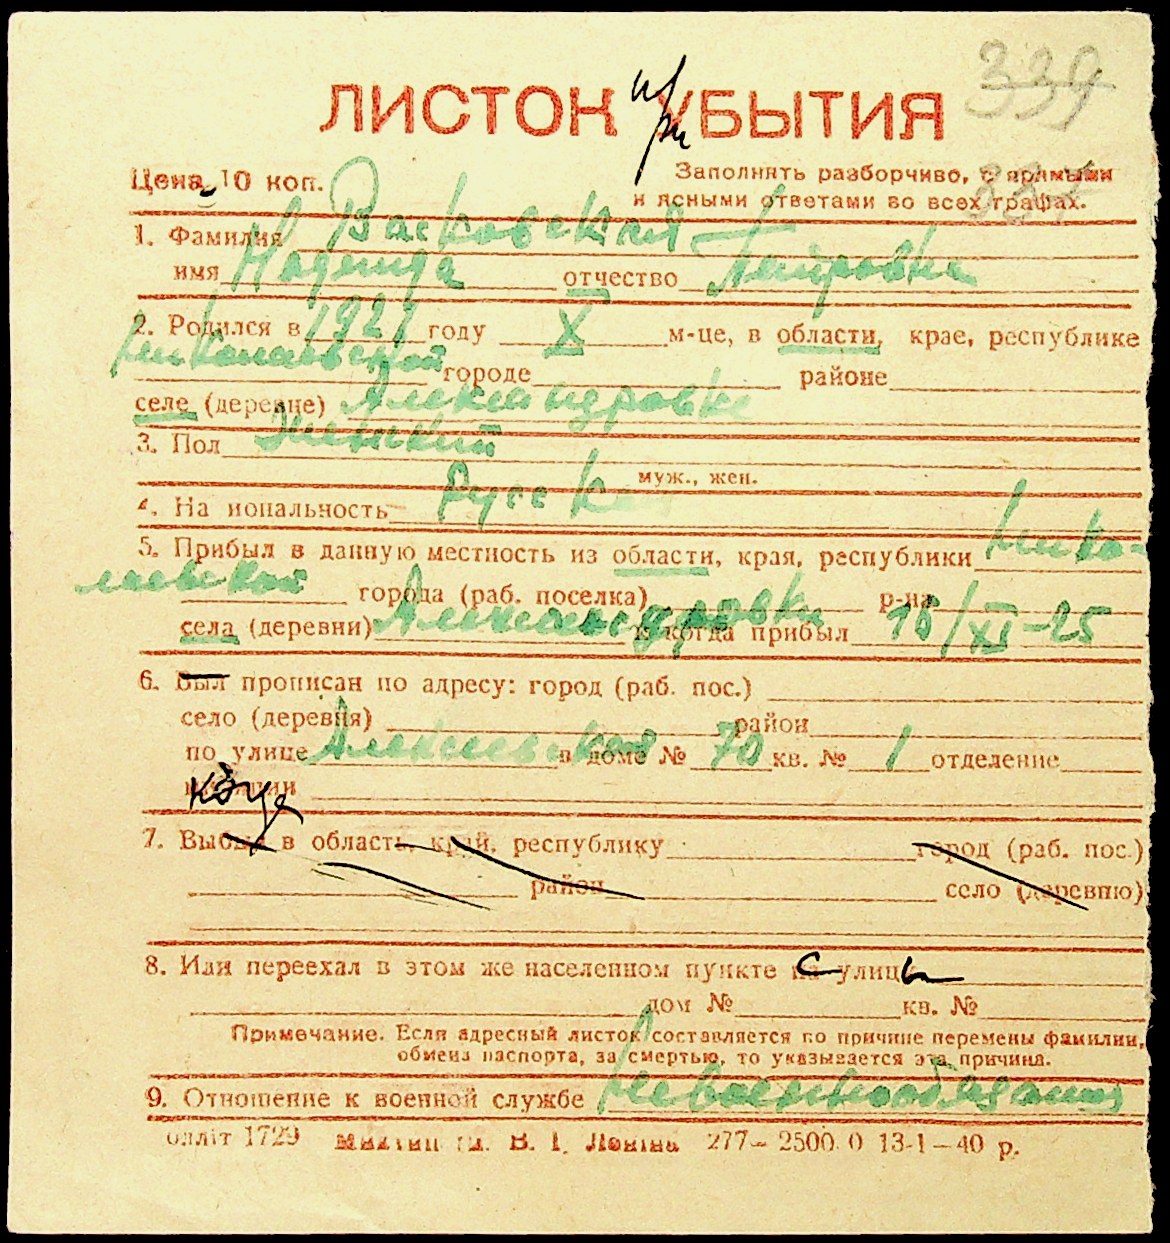 339
ЛИСТОК УБЫТИЯ
при
Цена 10 коп.
Заполнять разборчиво, с прямыми
и ясными ответами во всех графах.
1. Фамилия Васковская
имя Надежда отчество Петровна
2. Родился в 1921 году X м-це, в области, крае, республике
Николаевской городе районе
селе (деревне) Александровке
3. Пол Женский
муж., жен.
4. На иональность Русская
5. Прибыл в данную местность из области, края, республики Нико-
лаевской города (раб. поселка) р-на
села (деревни) Александровки и когда прибыл 15/XI-25
6. Был прописан по адресу: город (раб. пос.)
село (деревня) район
по улице Алексеевская в доме № 70 кв. № 1 отделение
милиции
7. Выбыл в область, край, республику город (раб. пос.)
район село (деревню)
8. Или переехал в этом же населенном пункте с улицы
дом № кв. №
Примечание. Если адресный листок составляется по причине перемены фамилии,
обмена паспорта, за смертью, то указывается эта причина.
9. Отношение к военной службе Невоеннообязанная
1729 В. І. Леніна 277–2500 0 13-1–40 р.